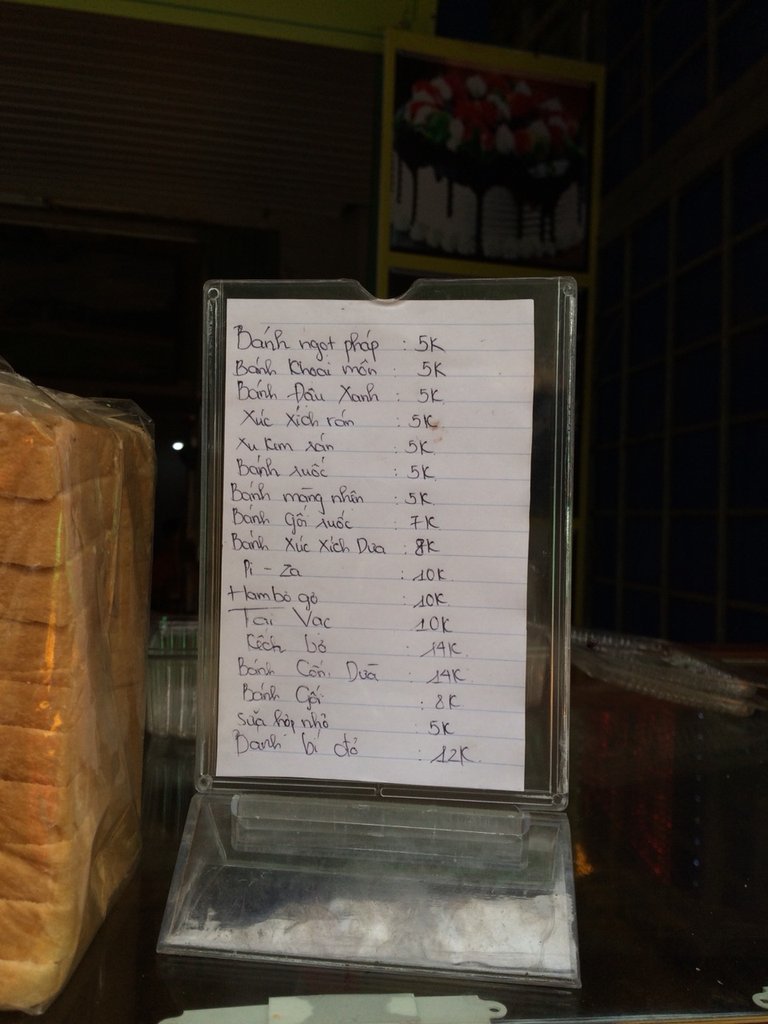 Bánh ngọt pháp : 5K
Bánh Khoai môn : 5K
Bánh Đâu Xanh : 5K
Xúc xích rán : 5K
Xu kem rán : 5K
Bánh ruốc : 5K
Bánh màng nhện : 5K
Bánh gối ruốc : 7K
Bánh Xúc Xích Dưa : 8K
Pi - Za : 10K
Hambơgơ : 10K
Tai Vac 10K
Kếch bơ : 14K
Bánh Cốn Dưà : 14K
Bánh Gối : 8K
sữa hộp nhỏ : 5K
Banh bí đỏ : 12K